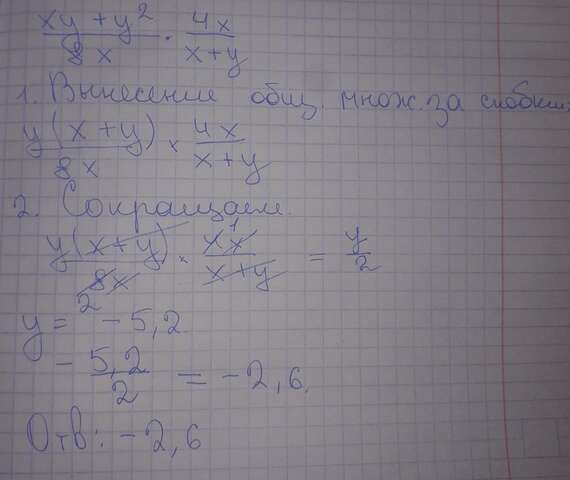 xy + y² / 8x · 4x / x+y
1. Вынесение общ. множ. за скобки.
y(x+y) / 8x × 4x / x+y
2. Сокращаем.
y(x+y) / 8x 2 × 4x 1 / x+y = y / 2
y = -5,2
- 5,2 / 2 = -2,6.
Отв: -2,6